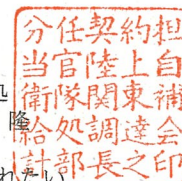 分任契約担
当官陸上自
衛隊関東補
給処調達会
計部長之印
処
隆
れたい